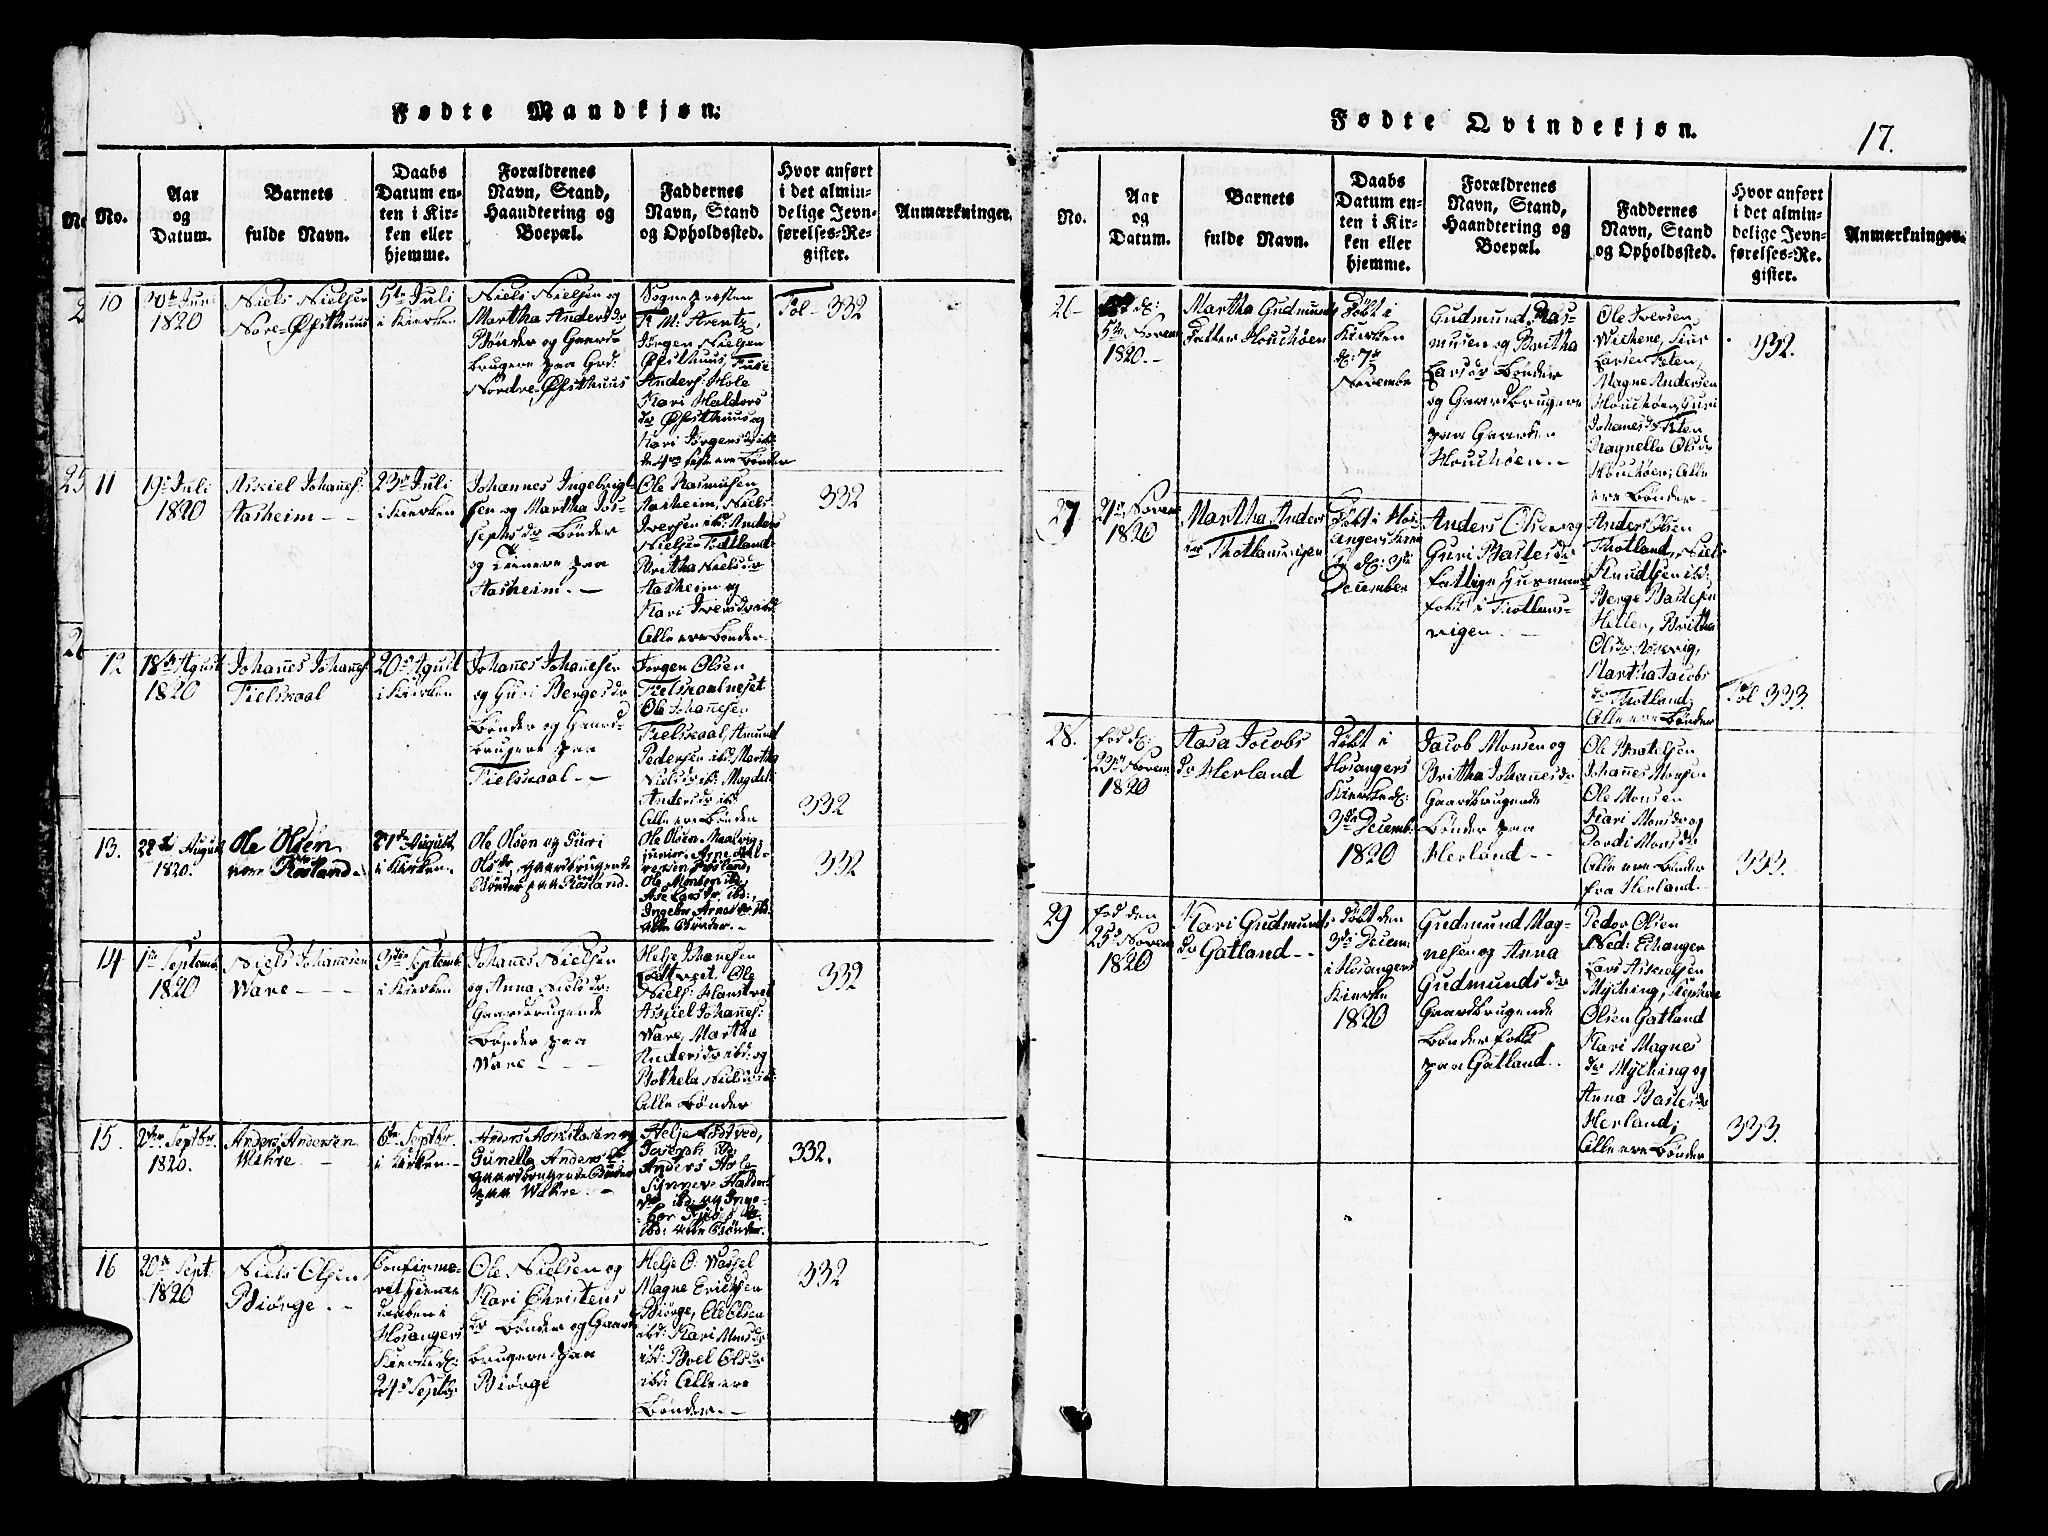 Fødte Mandkjøn.
No.
Aar
og
Datum.
Barnets
fulde Navn.
Daabs
Datum en-
ten i Kir-
ken eller
hjemme.
Forældrenes
Navn, Stand,
Haandtering og
Boepæl.
Faddernes
Navn, Stand
og Opholdssted.
Hvor anført
i det almin-
delige Jevn-
førelses-Re-
gister.
Anmærkninger.
10
20de Juni
1820
Niels Nielsen
Nore-Øfsthuus
5te Juli
i Kierken
Niels Nielsen og
Martha Andersdr
Bønder og Gaard-
brugere paa Grd:
Nordre-Øfsthuus
Sognepræsten
F. M. Arentz,
Jørgen Nielsen
Øfsthuus,
Anders: Hole
Kari Haldors
dr Øfsthuus og
Kari Jørgensdr ibd:
de 4re sidste ere Bønder
Fol- 332
11
19de Juli
1820
Askiel Johañes:
Aasheim - -
23de Juli
i Kierken
Johannes Ingebrigt-
sen og Martha Jos-
sephs dr Bønder
og Lienere paa
Aasheim. -
Ole Rasmusen
Aasheim, Niels
Iversen ibd: Anders
Nielsen Todtland
Britha Nielsdr
Aasheim og
Kari Iversdr ibd:
Alle ere Bønder
332
12
18de Agust
1820
Johañes Johañes:
Fielskaal
20de Agust
i Kierken
Johañes Johañesen
og Guri Bergesdr
Bønder og Gaard-
brugere paa
Fielskaal - -
Jørgen Olsen
Fielskaalneset
Ole Johañesen
Fielskaal, Amund
Pedersen ibd: Martha
Nielsdr ibd: Magdeli
Andersdr ibd:
Alle ere Bønder
332
13.
22de August
1820.
Ole Olsen
Røsland -
27de August
i Kirken.
Ole Olsen og Guri
Olsdr, gaardbrugende
Bønder paa Røsland.
Ole Olsen Maalvig
junior, Arne
Røsland,
Ole Monsen ibd,
Ase Larsdr ibd:,
Ingebor Arnesdr ibd:
alle Bønder. -
332
14
1ste Septemb.
1820
Niels Johañesen
Ware - - -
3die Septemb.
i Kierken
Johañes Nielsen
og Anna Niels dr:
Gaardbrugende
Bønder paa
Ware - - -
Helje Johañesen
Lodtveit, Ole
Niels: Hanstvet
Askiel Johañes:
Ware, Martha
Andersdr ibd: og
Bothela Nielsdr ibd:
Alle Bønder
332
15.
2den Septbr.
1820.
Anders Andersen
Wehre. -
6te Septbr.
i Kirken -
Anders Askildsen og
Gunella Anders dr
gaardbrugende Bønder
paa Wehre. -
Helje Lodtved,
Joseph ibd:
Anders Hole
Synneve Haldors
dr ibd: og Inge-
bor
ibd: alle Bønder.
332.
16
20de Sept.
1820
Niels Olsen
Biørge. - -
Confirme-
ret Hiemme
daaben i
Hosangers
Kierke d:
24de Septbr:
Ole Nielsen og
Kari Christens
dr Bønder og Gaard
brugere paa
Biørge
Helje O: Wassel
Magne Erichsen
Biørge, Ole Olsen
ibd: Kari Monsdr
ibd: Boel Olsdr
ibd: Alle ere
Bønder. -
332
Fødte Qvindekjøn.
17.
No.
Aar
og
Datum.
Barnets
fulde Navn.
Daabs
Datum en-
ten i Kir-
ken eller
hjemme.
Forældrenes
Navn, Stand,
Haandtering og
Boepæl.
Faddernes
Navn, Stand
og Opholdssted.
Hvor anført
i det almin-
delige Jevn-
førelses-Re-
gister.
Anmærkninger.
26
d:
5te Novem
1820. -
Martha Gudmunds
Datter Houchøen
Døbt i
Kierken
d: 7de
November
Gudmund Ras-
musen og Britha
Larsdr Bønder
og Gaardbrugere
paa Gaarden
Houchøen. -
Ole Iversen
Wichene, Siur
Larsen Teten,
Magne Andersen
Houchøen, Guri
Johanesdr Teten
Ragnella Olsdr
Houchøen, Alle
ere Bønder -
332.
27
21de Novem
1820
Martha Anders
dr Thotlansvigen
Døbt i Hos
angers Kirke
d: 3die
December
Anders Olsen og
Guri Bastesdr
fattige Husmans
folk i Thotlans-
vigen - -
Anders Olsen
Thotland, Niels
Knudtsen ibd:
Berge Bastesen
Hellen, Britha
Olsdr
Martha Jacobs
dr Thotland,
Alle ere Bønder
Fol 333.
28.
Fød d:
23de Novem
1820
Aasa Jacobs
dr Herland
Døbt i
Hosangers
Kierke d:
3die Decemb.
1820
Jacob Monsen og
Britha Johañesdr
Gaardbrugende
Bønder paa
Herland - -
Ole Bastesen
Johañes Monsen
Ole Monsen
Kari Monsdr og
Dordi Monsdr
Alle ere Bønder
fra Herland
333.
29
Fød den
25de Novem
1820
Kari Gudmunds
dr Gatland - -
Døbt den
3die Decem
i Hosangers
Kierke
1820
Gudmund Mag-
nesen og Anna
Gudmunds dr
Gaardbrugende
Bønder folk
paa Gatland. -
Peder Olsen
Ned: Echanger
Lars Askielsen
Mÿching, Stephen
Olsen Gatland
Kari Magnes
dr Mÿching og
Anna Bastesdr
Herland;
Alle ere Bønder
333.